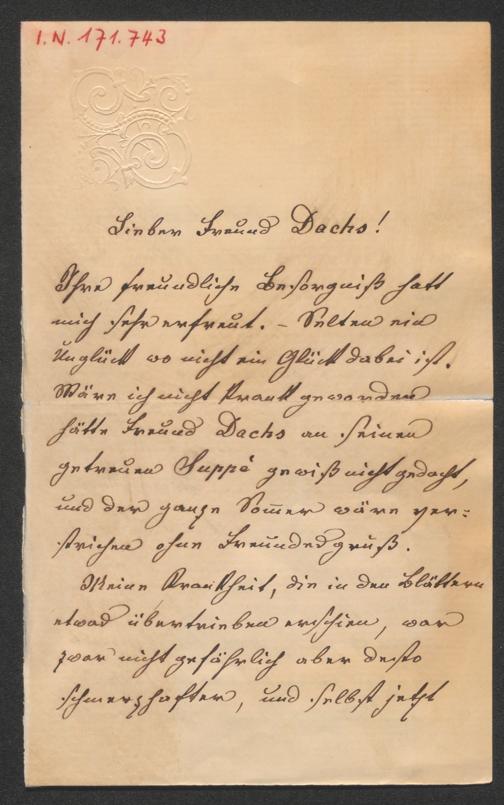 I. N. 171.743
Lieber Freund Dachs!
Ihre freundliche Besorgniß hatt
mich sehr erfreut. – Selten ein
Unglück wo nicht ein Glück dabei ist.
Wäre ich nicht krank geworden
hätte Freund Dachs an seinen
getreuen Suppè gewiß nicht gedacht,
und der ganze Som̅er wäre ver=
strichen ohne Freundesgruß.
Meine Krankheit, die in den Blättern
etwas übertrieben erschien, war
zwar nicht gefährlich aber desto
schmerzhafter, und selbst jetzt